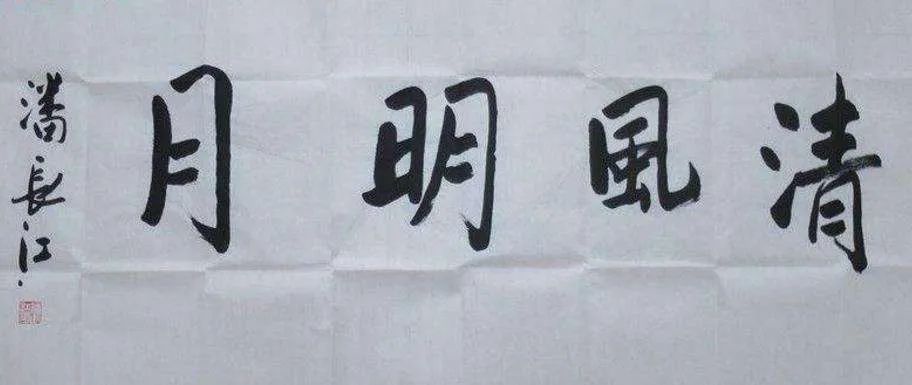 清風明月
潘長江